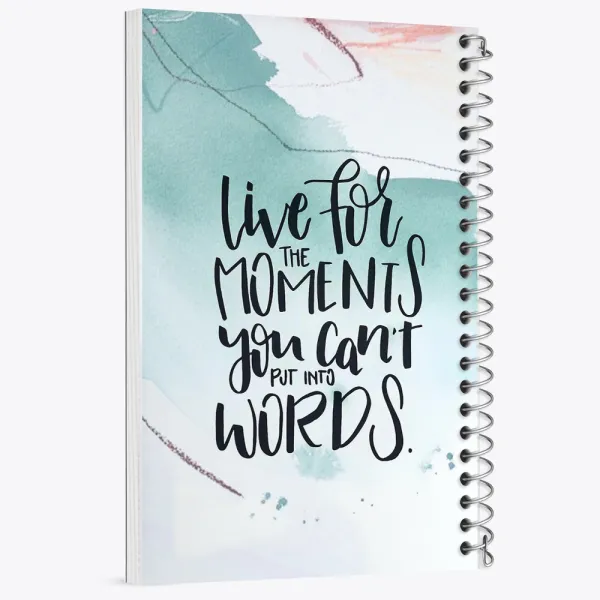 live for
THE
MOMENTS
you can't
PUT INTO
WORDS.